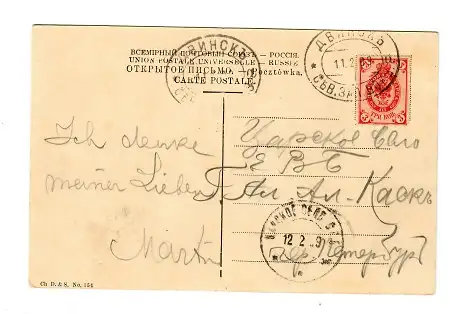 ВСЕМІРНЫЙ ПОЧТОВЫЙ СОЮЗЪ. — РОССІЯ.
UNION POSTALE UNIVERSELLE. — RUSSIE
ОТКРЫТОЕ ПИСЬМО. — Pocztówka.
CARTE POSTALE.
ДВИНСКЪ
ДВИНСКЪ
11.2
3 ТРИ КОП. 3
Ich denke
meiner Lieben
Martin
Царское Село
Е В Б
Ал. Ал.
Петербург
ЦАРСКОЕ СЕЛО
12 2 .9
Ch. D. & S. No. 154